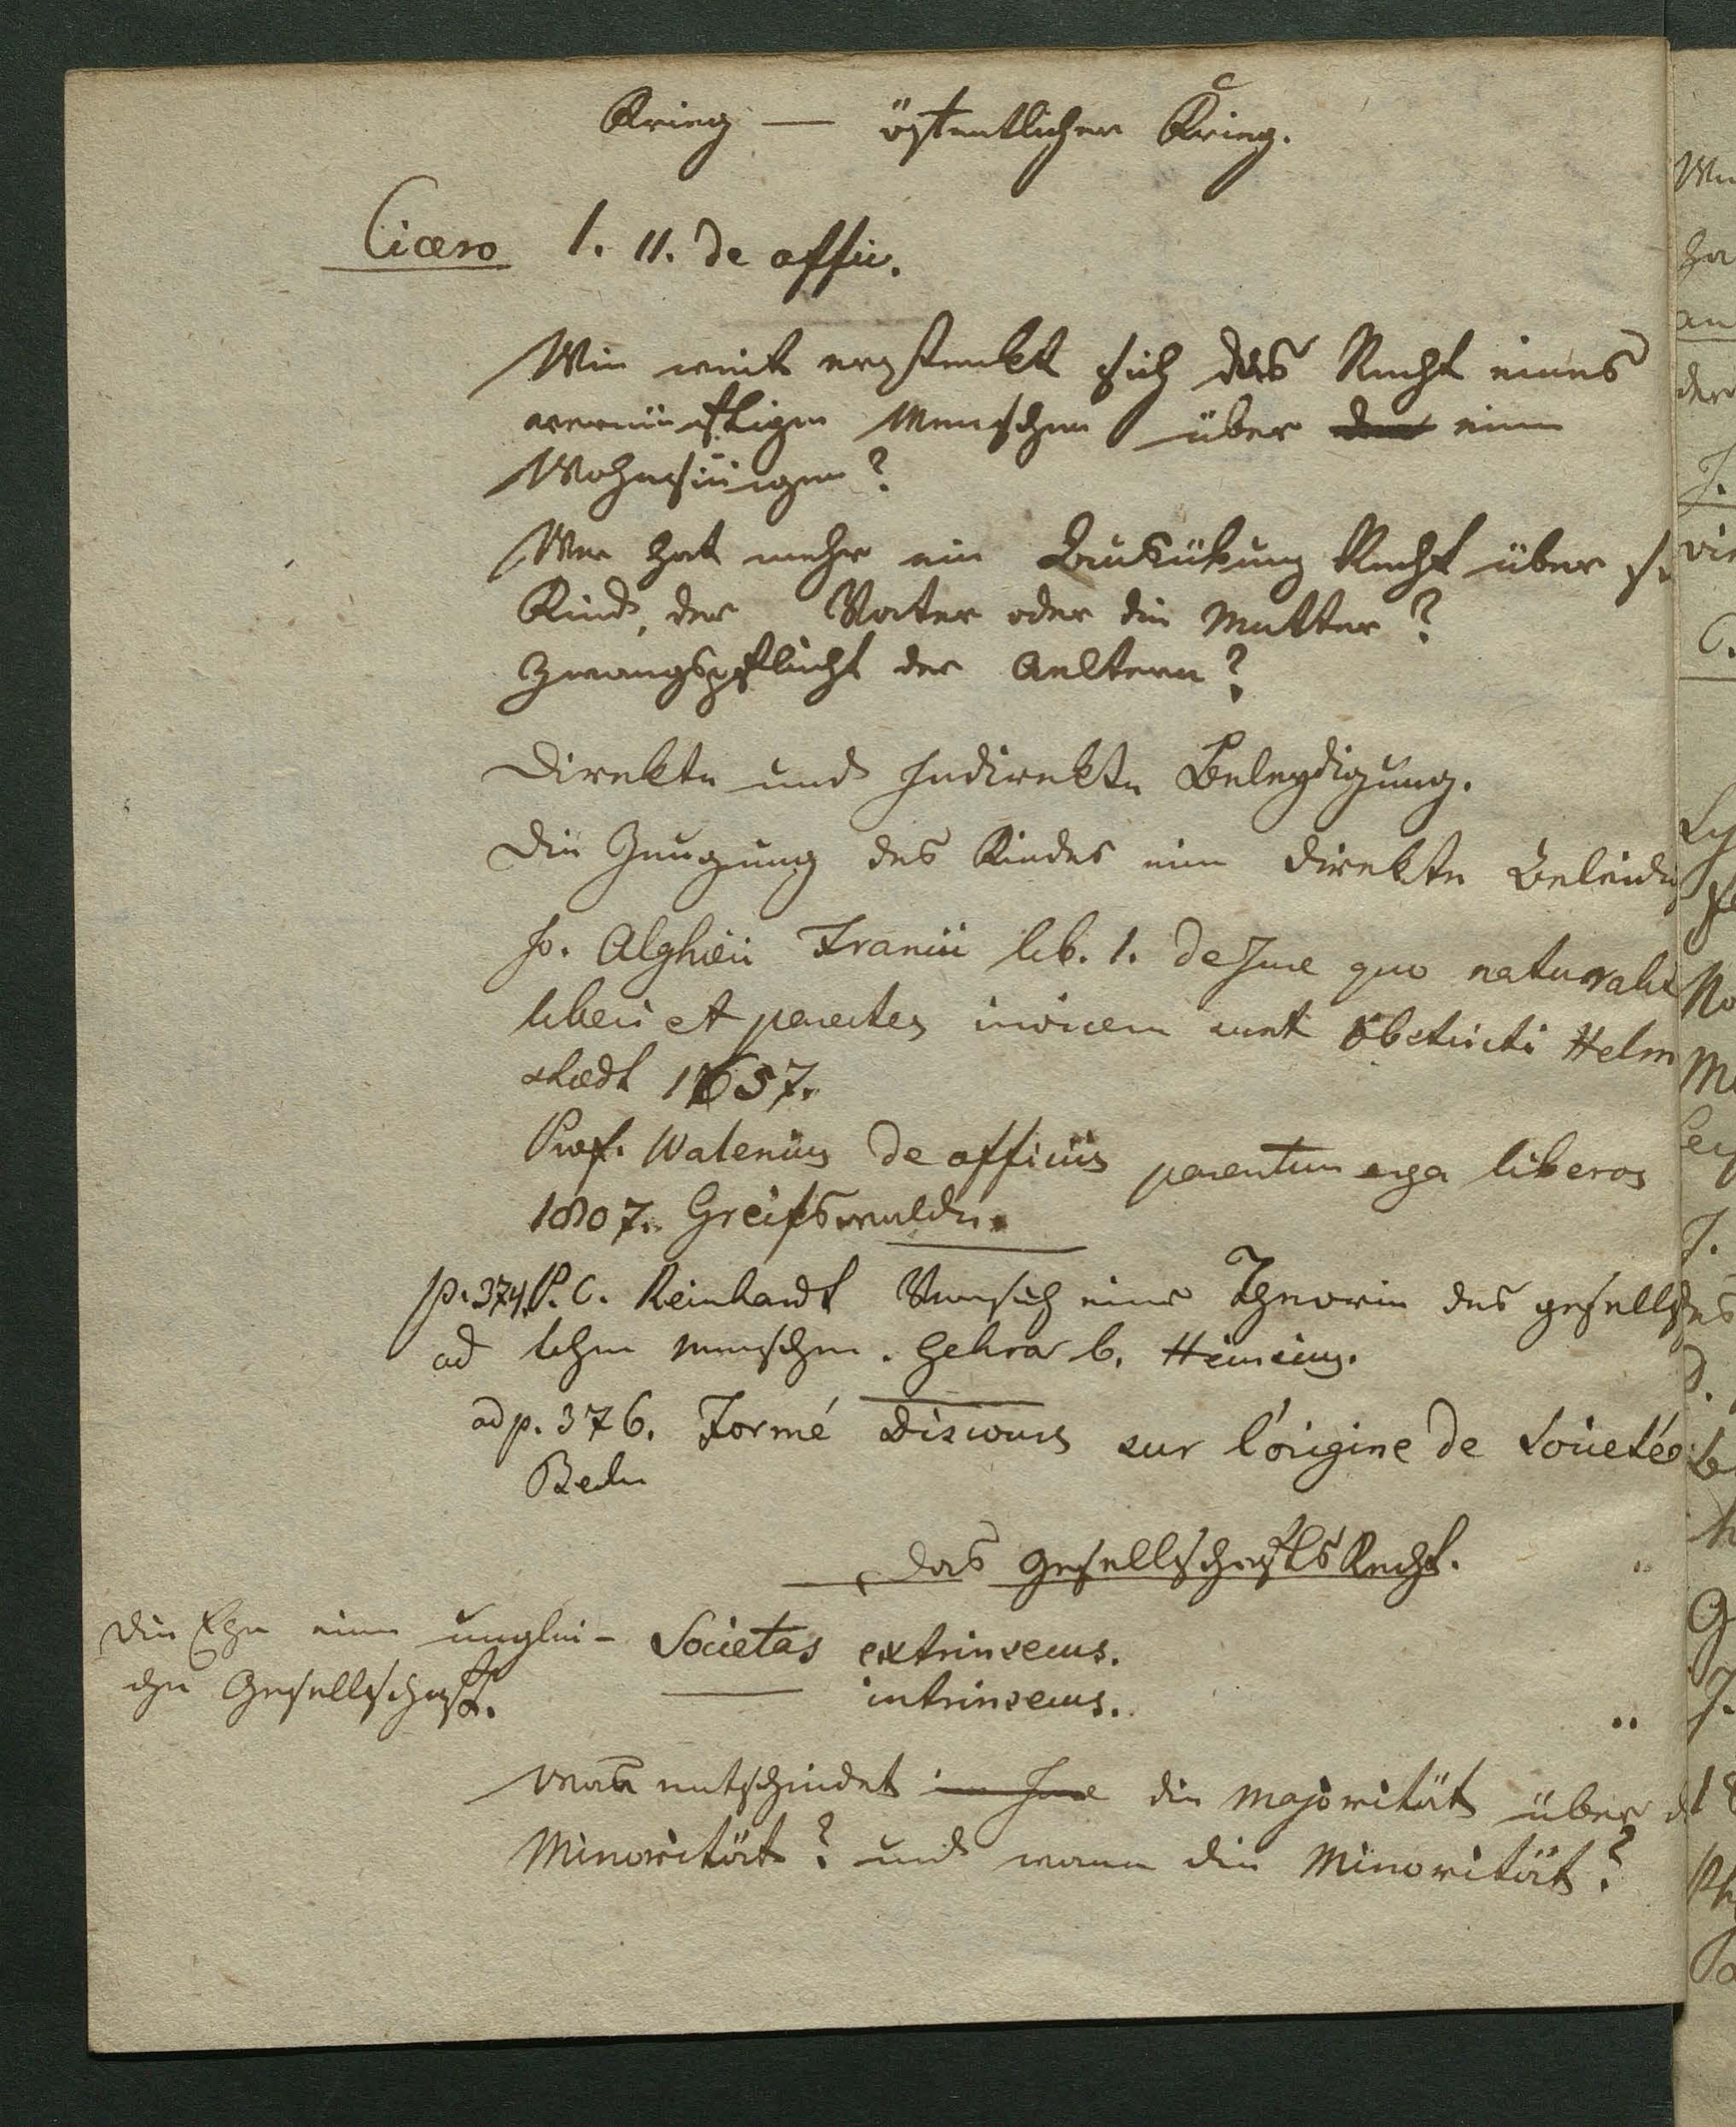 Krieg — öffentlicher Krieg.
Cicero 1. 11. de offic.
Wie weit erstrekt sich das Recht eines
vernünftigen Menschen über einen
Wahnsinnigen?
Wer hat mehr ein Recht über
Kind, der Vater oder die Mutter?
Zwangspflicht der Aeltern?
Direkte und Indirekte Beleydigung.
Die Zeugung des Kindes eine direkte Beleidig
Jo. lib. 1. de Jure quo naturali
liberi et parentes invicem sunt obstricti Helm
stædt 1657.
Prof. de officiis parentum erga liberos
1807. Greifswalde.
p. 374. P. C. Reinhardt Versuch einer Theorie des gesellsch
ad lichen Menschen. b.
ad p. 376. Formé Discours sur l'origine de Societé
Berlin
Das GesellschaftsRecht.
Die Ehe eine unglei- Societas extrinsecus.
che Gesellschaft. — intrinsecus.
Wann entscheidet die Majorität über d
Minorität? und wann die Minorität?